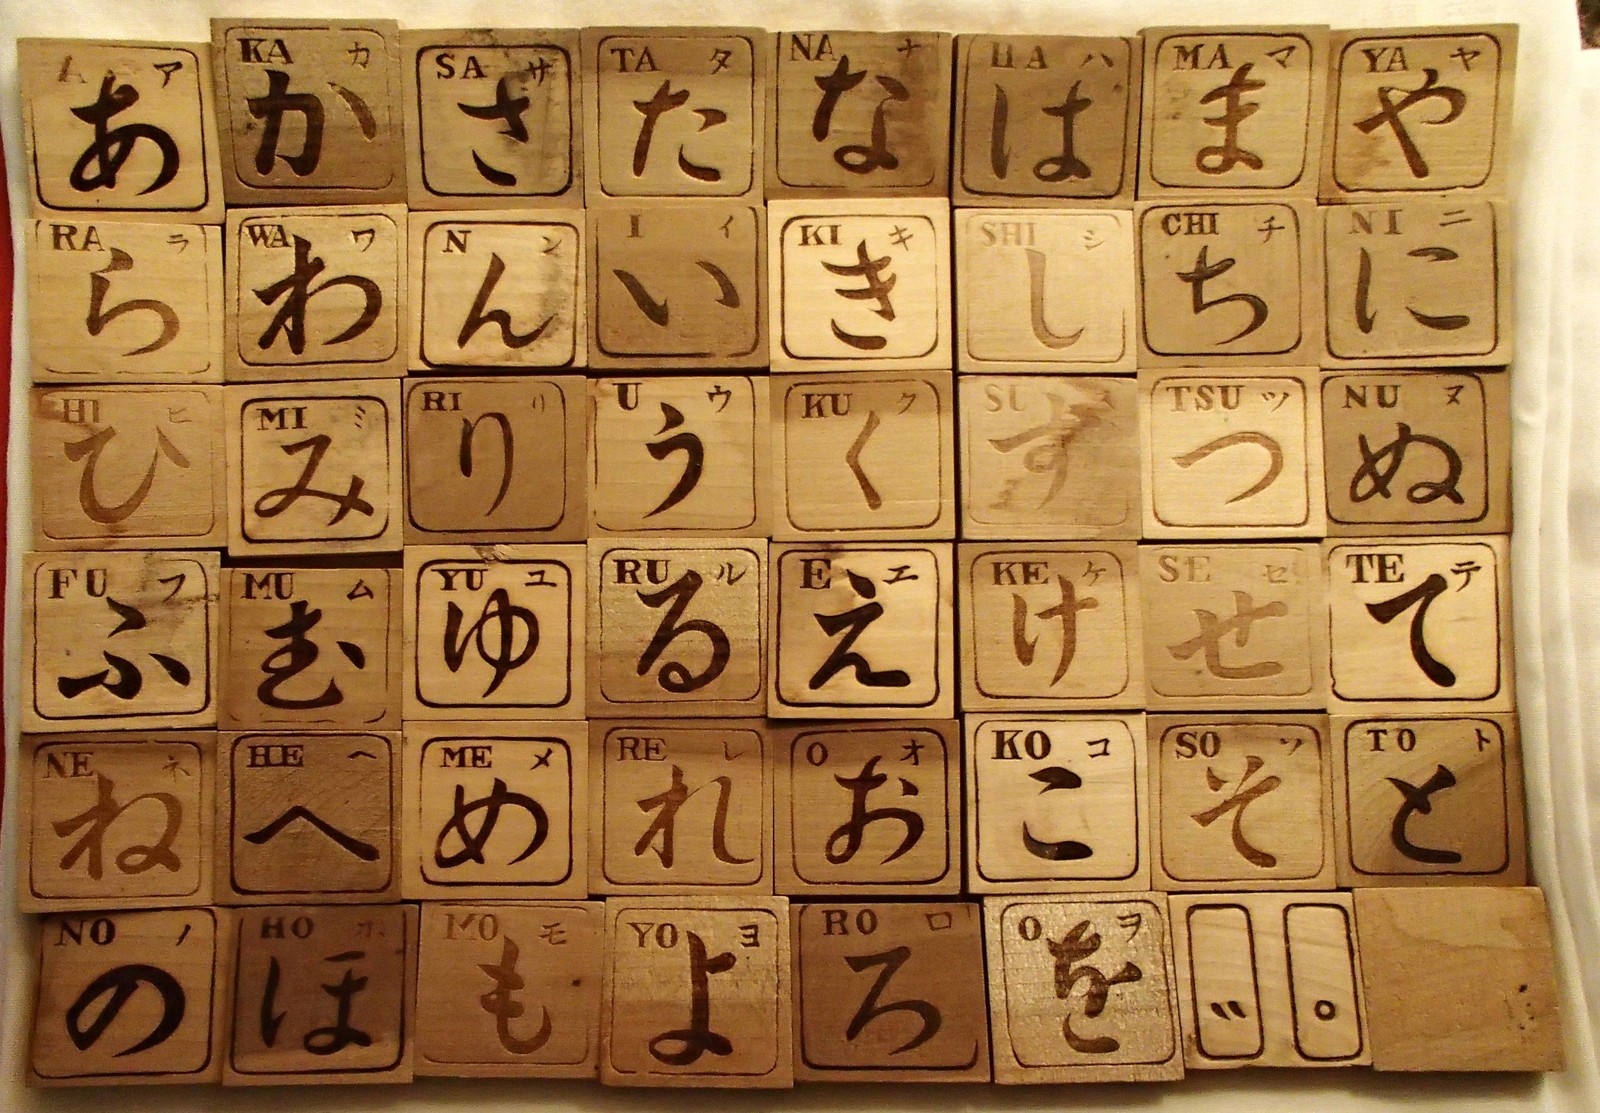 A ア KA カ SA サ TA タ NA ナ HA ハ MA マ YA ヤ
あ か さ た な は ま や
RA ラ WA ワ N ン I イ KI キ SHI シ CHI チ NI ニ
ら わ ん い き し ち に
HI ヒ MI ミ RI リ U ウ KU ク SU TSU ツ NU ヌ
ひ み り う く す つ ぬ
FU フ MU ム YU ユ RU ル E エ KE ケ SE セ TE テ
ふ む ゆ る え け せ て
NE ネ HE ヘ ME メ RE レ O オ KO コ SO ソ TO ト
ね へ め れ お こ そ と
NO ノ HO ホ MO モ YO ヨ RO ロ O ヲ
の ほ も よ ろ を ゛ ゜